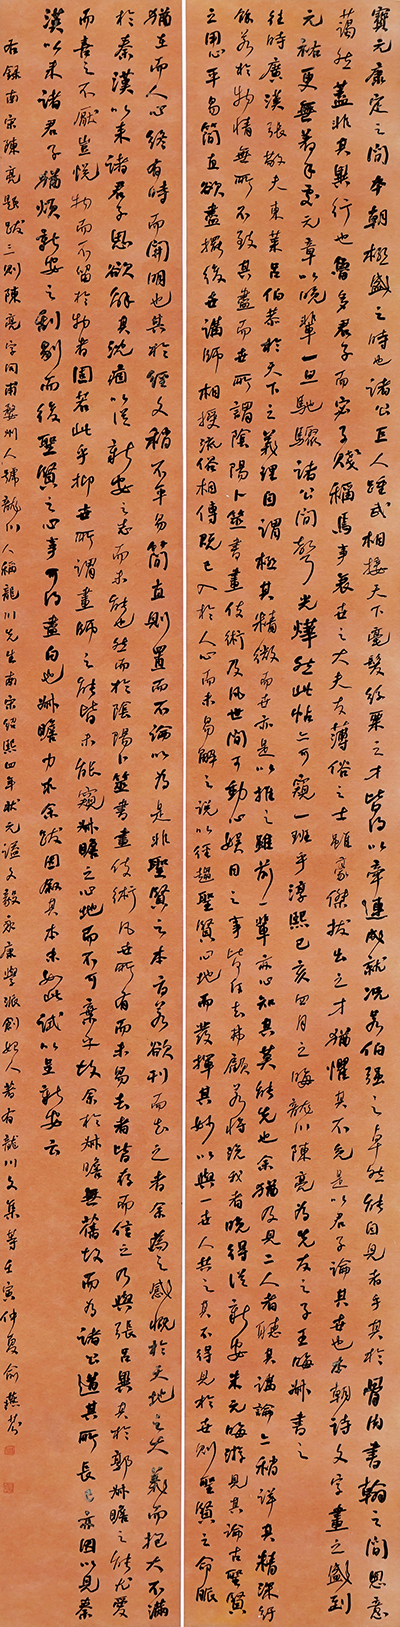 寶元康定之間本朝極盛之時也諸公巨人踵武相接天下毫髮絲粟之才皆得以牽連成就況若伯強之卓然能自見者乎其於骨肉書翰之間思意
藹然蓋非其異行也魯多君子而宓子賤稱焉事衰世之大夫友薄俗之士雖豪傑拔出之才猶懼其不免是以君子論其世也本朝詩文字畫之盛到
元祐更無著手處元章以晚輩一旦馳驟諸公間聲光燁然此帖亦可窺一班乎淳熙己亥四月之晦龍川陳亮為先友之子王晦叔書之
往時廣漢張敬夫東萊呂伯恭於天下之義理自謂極其精微而世亦是以推之雖前一輩亦心知其莫能先也余猶及見二人者聽其講論亦稍詳其精深紆
餘若於物情無所不致其盡而世所謂陰陽卜筮書畫伎術及凡世間可動心娛目之事皆斥去弗顧若將浼我者晚得從新安朱元晦遊見其論古聖賢
之用心平易簡直欲盡擺後世講師相授流俗相傳既已入於人心而未易解之說以徑趨聖賢心地而發揮其妙以與一世人共之其不得見於世則聖賢之命脈
猶在而人心終有時而開明也其於經文稍不平易簡直則置而不論以為是非聖賢之本旨若欲刊而去之者余為之感慨於天地之大義而抱大不滿
於秦漢以來諸君子思欲解其沈痼以從新安之志而未能也然而於陰陽卜筮書畫伎術凡世所有而未易去者皆存而信之乃與張呂異其於郭叔瞻之能尤愛
而喜之不厭豈悅物而不留於物者固若此乎抑世所謂畫師之能皆未能窺叔瞻之心地而不可棄乎故余於叔瞻無舊故而為諸公道其所長已亦因以見秦
漢以來諸君子猶煩新安之刮剔而後聖賢之心事可得盡白也叔瞻力求余跋因敘其本末如此試以呈新安云
右錄南宋陳亮題跋三則陳亮字同甫婺州人號龍川人稱龍川先生南宋紹熙四年狀元謚文毅永康學派創始人著有龍川文集等壬寅仲夏俞燕芬